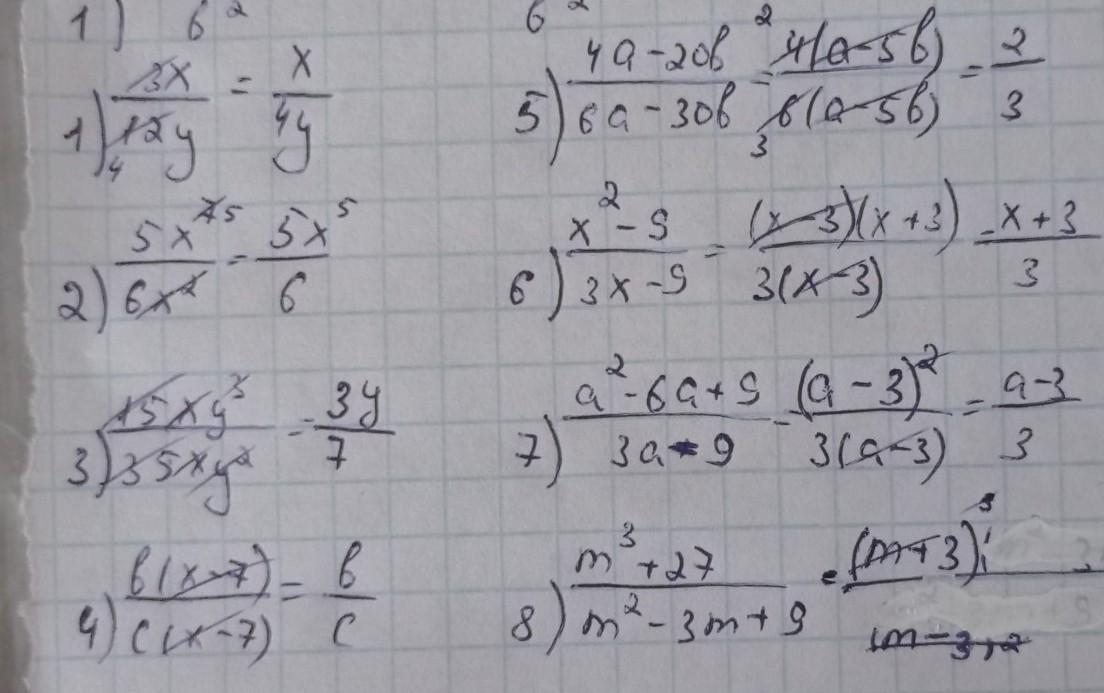 1) 6²
1) 3x/12y = x/4y
4
2) 5x⁷ ⁵/6x² = 5x⁵/6
3) 15xy³/35xy² = 3y/7
4) b(x-7)/c(x-7) = b/c
6²
5) 4a-20b/6a-30b = 4(a-5b)/6(a-5b) = 2/3
2
3
6) x²-9/3x-9 = (x-3)(x+3)/3(x-3) = x+3/3
7) a²-6a+9/3a-9 = (a-3)²/3(a-3) = a-3/3
8) m³+27/m²-3m+9 = (m+3)³